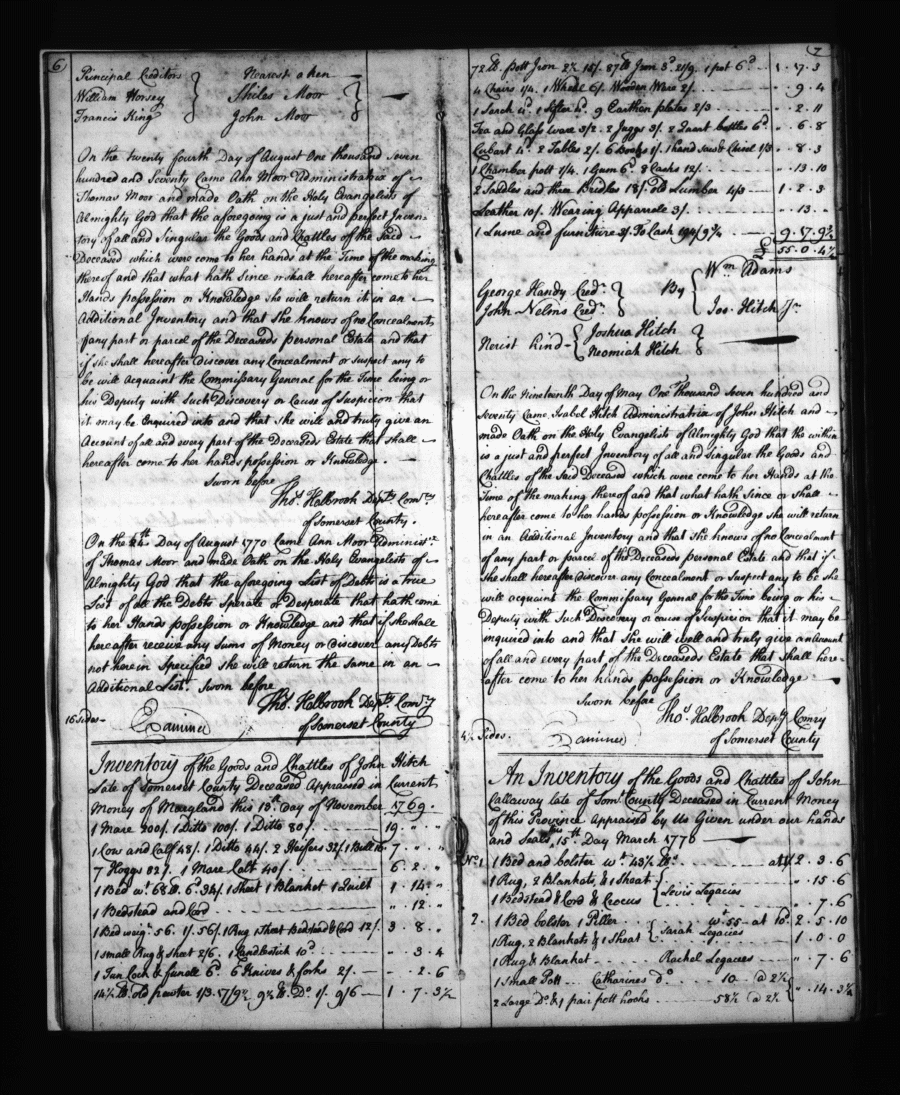 6
Principal Creditors Nearest a ken
William Horsey Shiles Moor
Francis King John Moor
On the twenty fourth Day of August One thousand seven
hundred and Seventy Came Ann Moor Administratrix of
Thomas Moor and made Oath on the Holy Evangelists of
Almighty God that the aforegoing is a just and perfect Inven-
tory of all and Singular the Goods and Chattles of the said
Deceased which were come to her hands at the Time of the making
thereof and that what hath Since or shall hereafter come to her
Hands possession or Knowledge she will return it in an
Additional Inventory and that she knows of no Concealment
of any part or parcel of the Deceaseds personal Estate and that
if she shall hereafter discover any Concealment or suspect any to
be will acquaint the Commissary General for the Time being or
his Deputy with such Discovery or Cause of Suspicion that
it may be Enquired into and that she will and truly give an
Account of all and every part of the Deceaseds Estate that shall
hereafter come to her hands possession or Knowledge.
Sworn before
Thos. Holbrook Depty Comry
of Somerset County.
On the 24th Day of August 1770 Came Ann Moor Administx
of Thomas Moor and made Oath on the Holy Evangelists of
Almighty God that the aforegoing List of Debts is a true
List of all the Debts Sperate or Desperate that hath come
to her Hands possession or Knowledge and that if she shale
hereafter receive any Sums of Money or discover any Debts
not herein Specified she will return the Same in an
Additional List. Sworn before
Thos. Holbrook Depty Comry
16 Sides Examined of Somerset County
Inventory of the Goods and Chattles of John Hitch
Late of Somerset County Deceased Appraised in Current
Money of Maryland this 13th day of November 1769.
1 Mare 200/. 1 Ditto 100/. 1 Ditto 80/. 19 " "
1 Cow and Calf 48/. 1 Ditto 44/. 2 Heifers 32/. 1 Bull 7 " "
7 Hoggs 82/. 1 Mare Calt 40/. 6 . 2 . "
1 Bed wt. 68 lb. 6d. 34/. 1 Sheet 1 Blanket 1 Quilt 1 . 14 . "
1 Bedstead and Cord " . 12 . "
1 Bed weig. 56. 1/. 56/. 1 Rug 1 Sheet Bedstead & Cord 12/. 3 . 8 . "
1 small Rug & Sheet 2/6. 1 Candlestick 10d. " . 3 . 4
1 Tun Lock & funell 6d. 6 Knives & forks 2/. " . 2 . 6
14½ lb. old pewter 1/3. 17/9½ 9½ lb. Do. 1/. 9/6 1 . 7 . 3½
7
72 lb. pott Iron 2½ 15/. 87 lb Iron 3d. 21/9. 1 pot 6d. 1 . 17 . 3
4 Chairs 1/4. 1 Wheel 6/. Wooden Ware 2/. " . 9 . 4
1 Sarch 4d. 1 sifter . 9 Earthen plates 2/3 " . 2 . 11
Tea and Glass ware 3/2. 2 Juggs 3/. 2 Quart bottles 6d. " . 6 . 8
2 Tables 2/. 6 Books 1/. 1 hand Saw & Chisel 1/3 " . 8 . 3
1 Chamber pott 1/4. 1 Gum 6d. 8 Casks 12/. " . 13 . 10
2 Saddles and three Bridles 18/. old Lumber 4/3 1 . 2 . 3
Leather 10/. Wearing Apparrele 3/. " . 13 . "
1 Lume and furniture 3/. To Cash 194/9½ 9 . 17 . 9½
55 . 0 . 4½
George Handy Credr. By Wm Adams
John Nelms Credr. Jos. Hitch Jr.
Nerist Kind Joshua Hitch
Neomiah Hitch
On the Nineteenth Day of May One Thousand Seven hundred and
Seventy Came Isabel Hitch Administratrix of John Hitch and
made Oath on the Holy Evangelists of Almighty God that the within
is a just and perfect Inventory of all and singular the Goods and
Chattles of the Said Deceased which were come to her Hands at the
Time of the making thereof and that what hath Since or shall
hereafter come to her hands possession or Knowledge she will return
in an Additional Inventory and that She knows of no Concealment
of any part or parcel of the Deceaseds personal Estate and that if
She shall hereafter discover any Concealment or Suspect any to be she
will acquaint the Commissary General for the Time being or his
Deputy with Such Discovery or cause of Suspicion that it may be
inquired into and that She will well and truly give an Account
of all and every part of the Deceaseds Estate that shall here-
after come to her hands possession or Knowledge
Sworn before
Thos. Holbrook Depty Comry
4½ Sides. Examined of Somerset County
An Inventory of the Goods and Chattles of John
Callaway late of Somt. County Deceased in Current Money
of this Province Appraised by Us Given under our hands
and Seals this 15th. Day March 1770
No. 1 1 Bed and bolster wt. 43½ lb. at 1/ 2 . 3 . 6
1 Rug, 2 Blankets, & 1 Sheat Levis Legacies " . 15 . 6
1 Bedstead & Cord & Crocus " . 7 . 6
2. 1 Bed bolster 1 Piller wt. 55 at 10d. 2 . 5 . 10
1 Rug, 2 Blankets & 1 Sheat Sarah Legacies 1 . 0 . 0
1 Rug & Blanket Rachel Legacies " . 7 . 6
1 Small Pott Catharines do 10 a 2½
2 Large Do. & 1 pair pott hooks 58½ a 2½ " . 14 . 3½